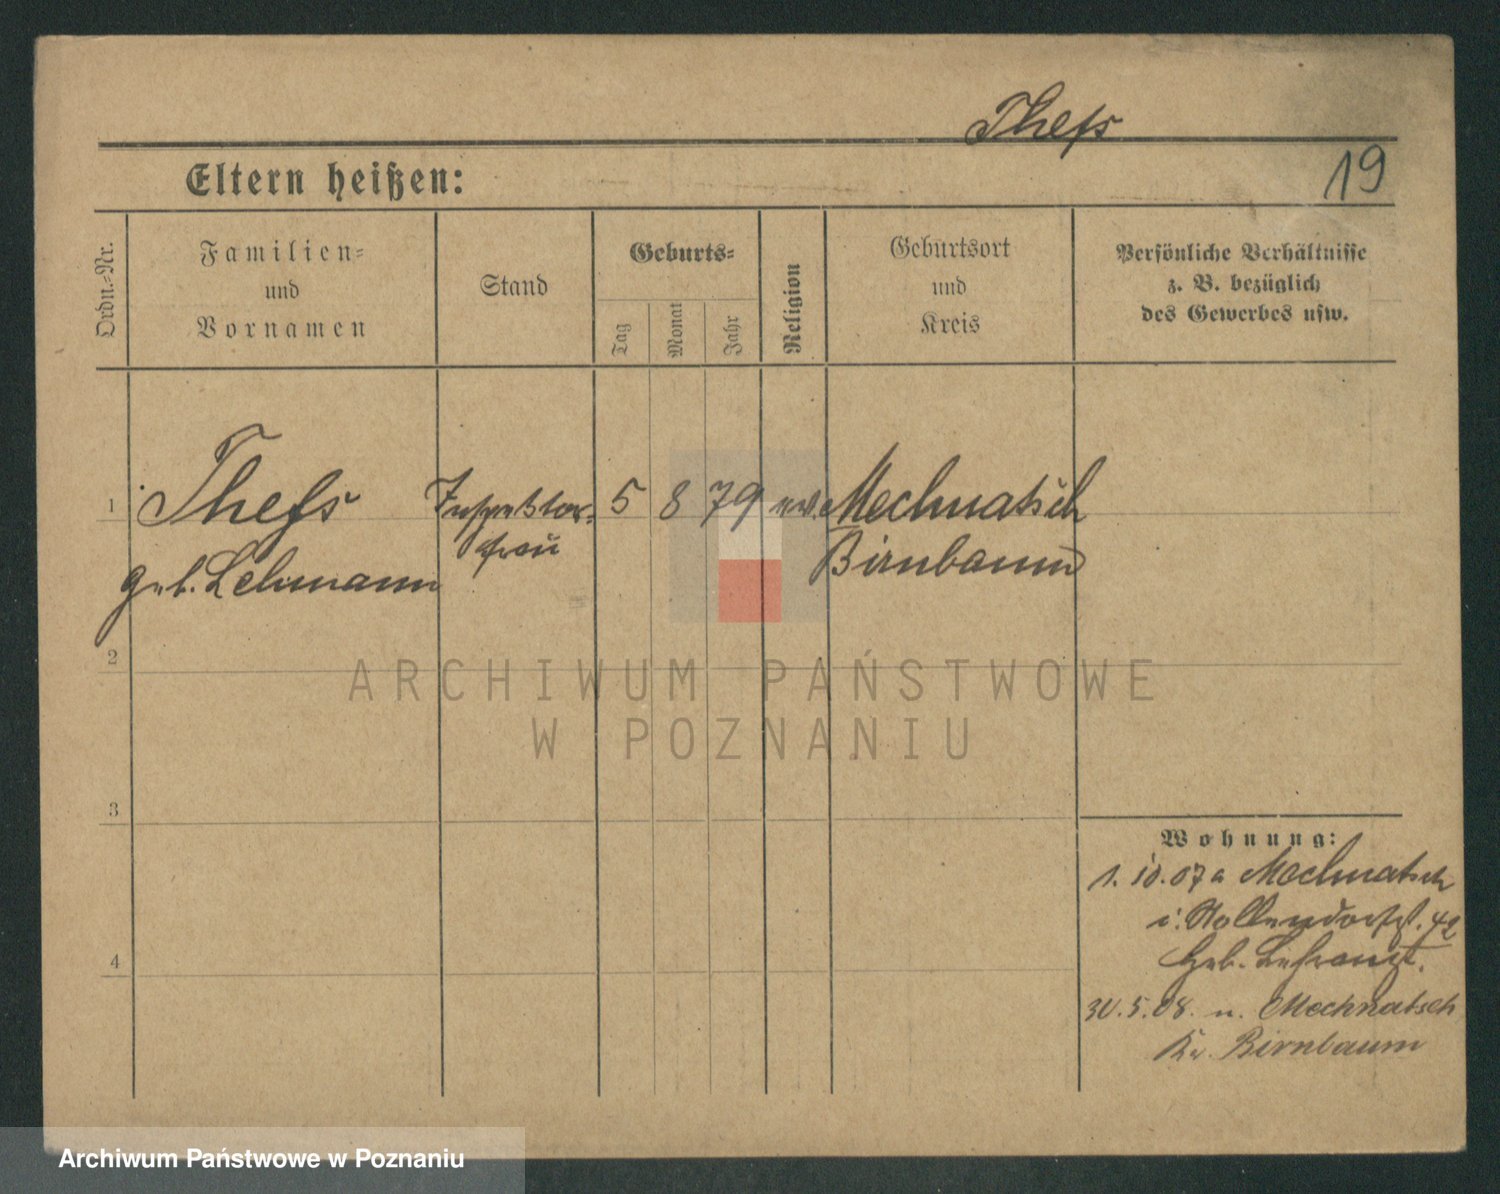 Thefs
19
Eltern heißen:
Ordn.-Nr.
Familien-
und
Vornamen
Stand
Geburts-
Tag
Monat
Jahr
Religion
Geburtsort
und
Kreis
Persönliche Verhältnisse
z. B. bezüglich
des Gewerbes usw.
1 Thefs Inspektor- 5 8 79 ev. Mechnatsch
geb. Lehmann frau Birnbaum
2
3
4
Wohnung:
1. 10. 07 a Mechnatsch
i. Nollendorfst. 42
30. 5. 08. n. Mechnatsch
Kr. Birnbaum
ARCHIWUM PAŃSTWOWE
W POZNANIU
Archiwum Państwowe w Poznaniu